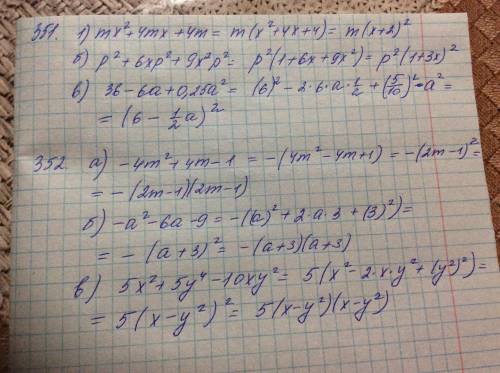 351. 1) mx²+4mx+4m = m(x²+4x+4) = m(x+2)²
б) p²+6xp²+9x²p² = p²(1+6x+9x²) = p²(1+3x)²
в) 36-6a+0,25a² = (6)²-2·6·a·1/2+(5/10)²·a² =
= (6-1/2a)²
352. а) -4m²+4m-1 = -(4m²-4m+1) = -(2m-1)² =
= -(2m-1)(2m-1)
б) -a²-6a-9 = -((a)²+2·a·3+(3)²) =
= -(a+3)² = -(a+3)(a+3)
в) 5x²+5y⁴-10xy² = 5(x²-2·x·y²+(y²)²) =
= 5(x-y²)² = 5(x-y²)(x-y²)